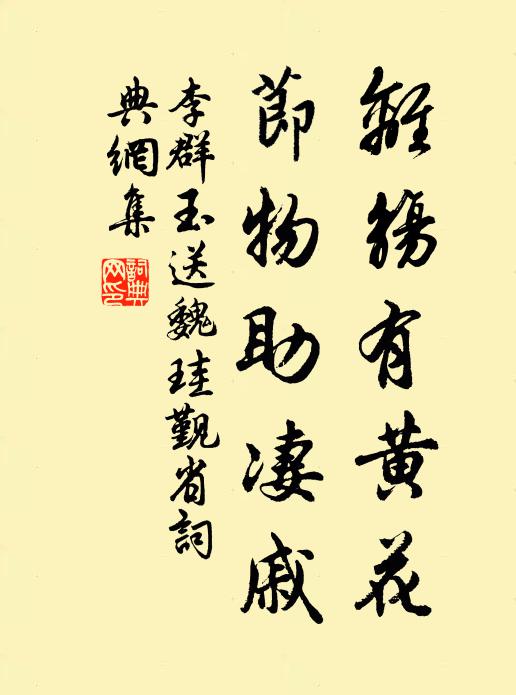 離觴有黄花
節物助凄戚
李群玉送魏珪覲省詞
典網集
詞典
网印